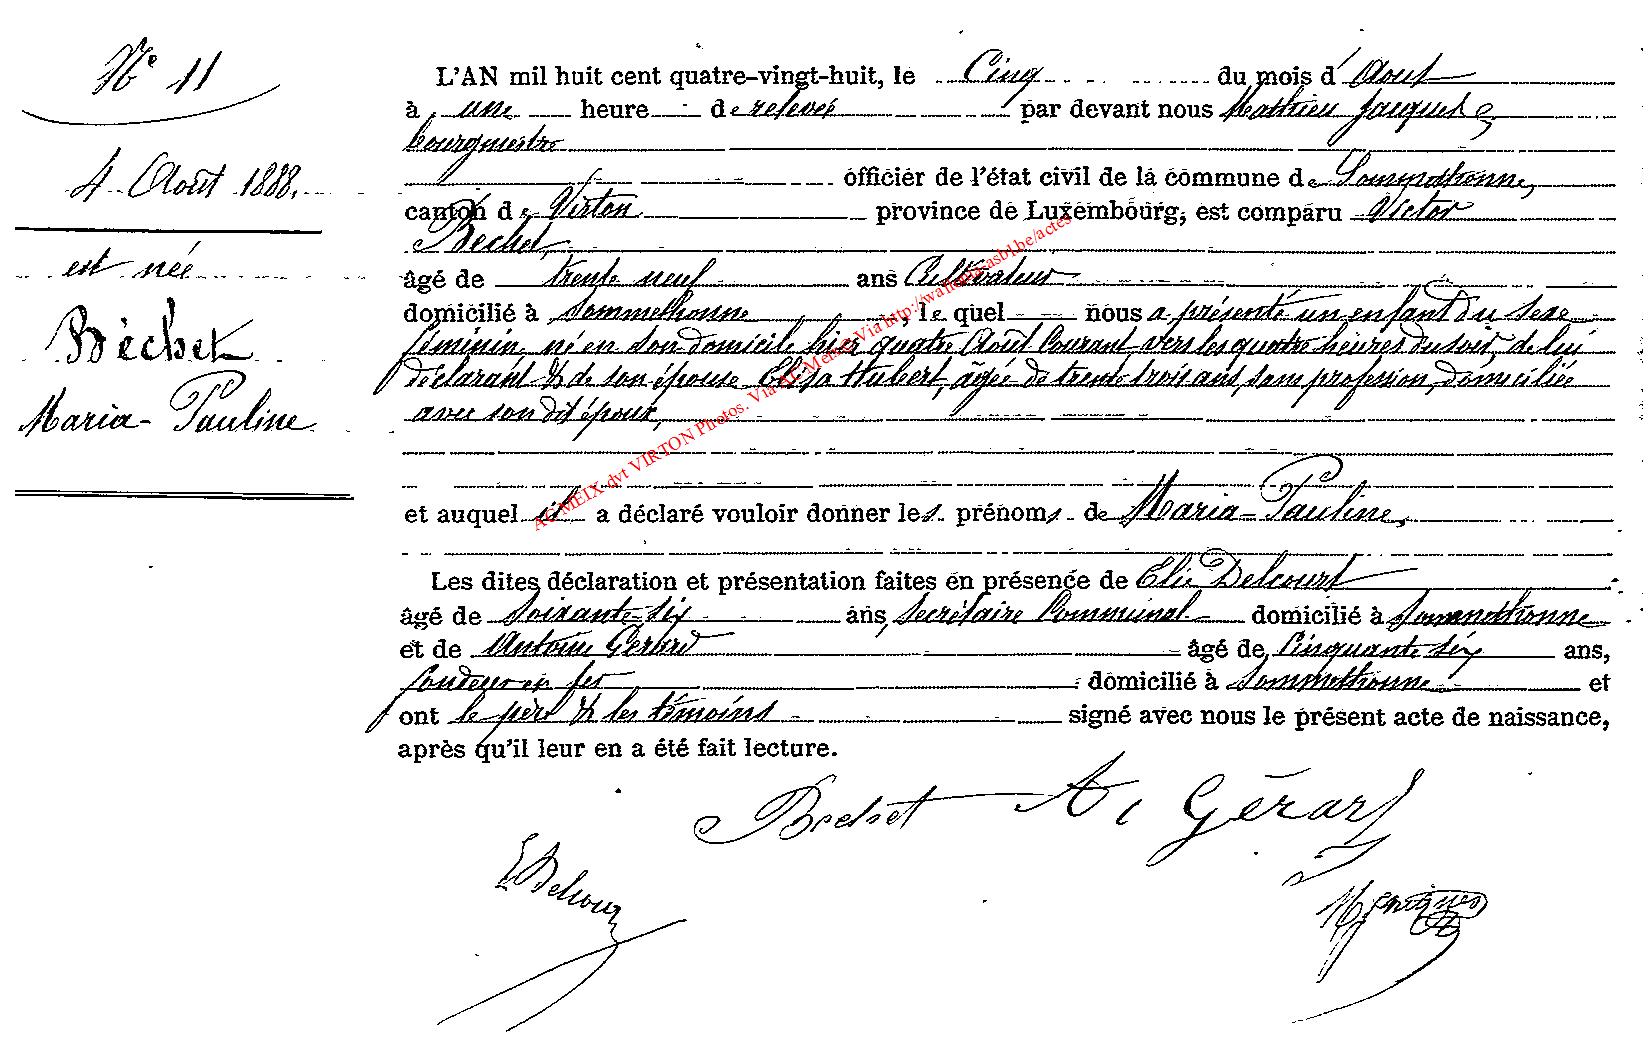 N° 11
4 Août 1888.
est née
Béchet
Maria-Pauline
L'AN mil huit cent quatre-vingt-huit, le Cinq du mois d'Août
à une heure de relevée par devant nous Mathieu
bourgmestre
officier de l'état civil de la commune de Sommethonne,
canton de Virton province de Luxembourg, est comparu Victor
Béchet,
âgé de trente neuf ans Cultivateur
domicilié à Sommethonne, lequel nous a présenté un enfant du sexe
féminin, né en son domicile hier quatre Août Courant, vers les quatre heures du soir, de lui
déclarant & de son épouse Elisa Hubert, agée de trente trois ans, sans profession, domiciliée
avec son dit époux,
et auquel il a déclaré vouloir donner les prénoms de Maria-Pauline,
Les dites déclaration et présentation faites en présence de Elie Delcourt
âgé de Soixante-six ans, Secrétaire Communal domicilié à Sommethonne
et de Antoine Gérard âgé de Cinquante six ans,
fondeur en fer domicilié à Sommethonne et
ont le père & les témoins signé avec nous le présent acte de naissance,
après qu'il leur en a été fait lecture.
Béchet A. Gérard
E Delcour
AC MEIX-dvt VIRTON Photos. Via AC Meix. Via http://wallonia-asbl.be/actes